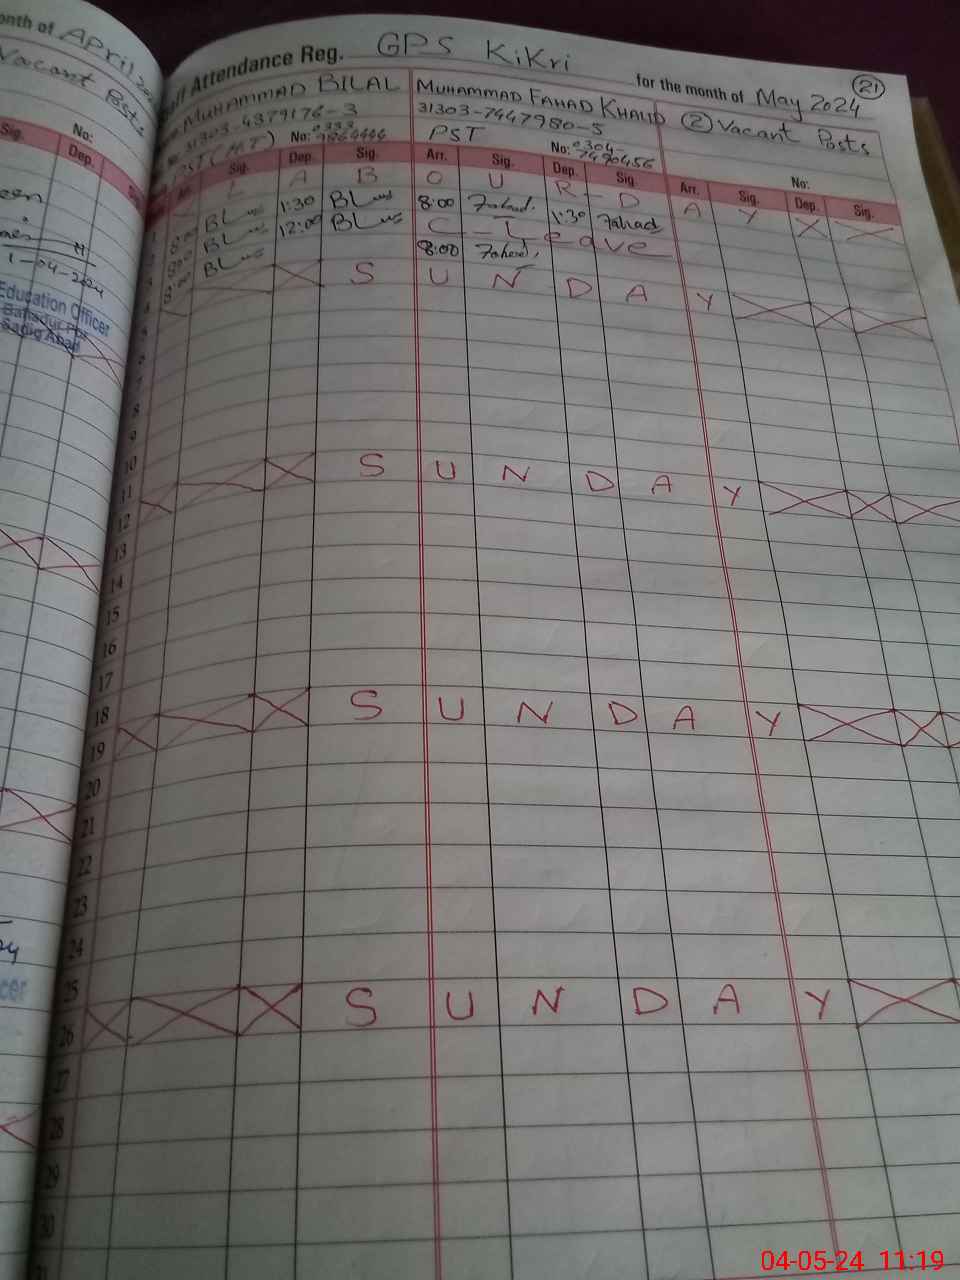 onth of April 20
Vacant Posts
Sig.
No:
Dep.
Sig
1-04-2024
Education Officer
Bahadur Pur
Sadiq Abad
cer
Attendance Reg. GPS KiKri for the month of May 2024 21
MUHAMMAD BILAL MUHAMMAD FAHAD KHALID 2 Vacant Posts
31303-4379176-3 31303-7447980-5
PST No: 0333- PST No: 0304-7490456 No:
Arr. Sig. Dep. Sig. Arr. Sig. Dep. Sig. Arr. Sig. Dep. Sig.
1 L A B O U R - D A Y
2 8:00 1:30 8:00 Fahad. 1:30 Fahad
3 8:00 12:00 C - Leave
4 8:00 8:00 Fahad
5 S U N D A Y
6
7
8
9
10
11
12 S U N D A Y
13
14
15
16
17
18
19 S U N D A Y
20
21
22
23
24
25
26 S U N D A Y
27
28
29
30
31
04-05-24 11:19